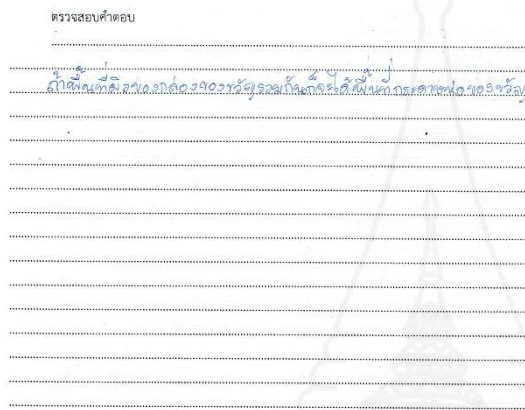 ตรวจสอบคำตอบ
ถ้าพื้นที่ผิวของกล่องของขวัญรวมกันก็จะได้พื้นที่กระดาษห่อของขวัญ